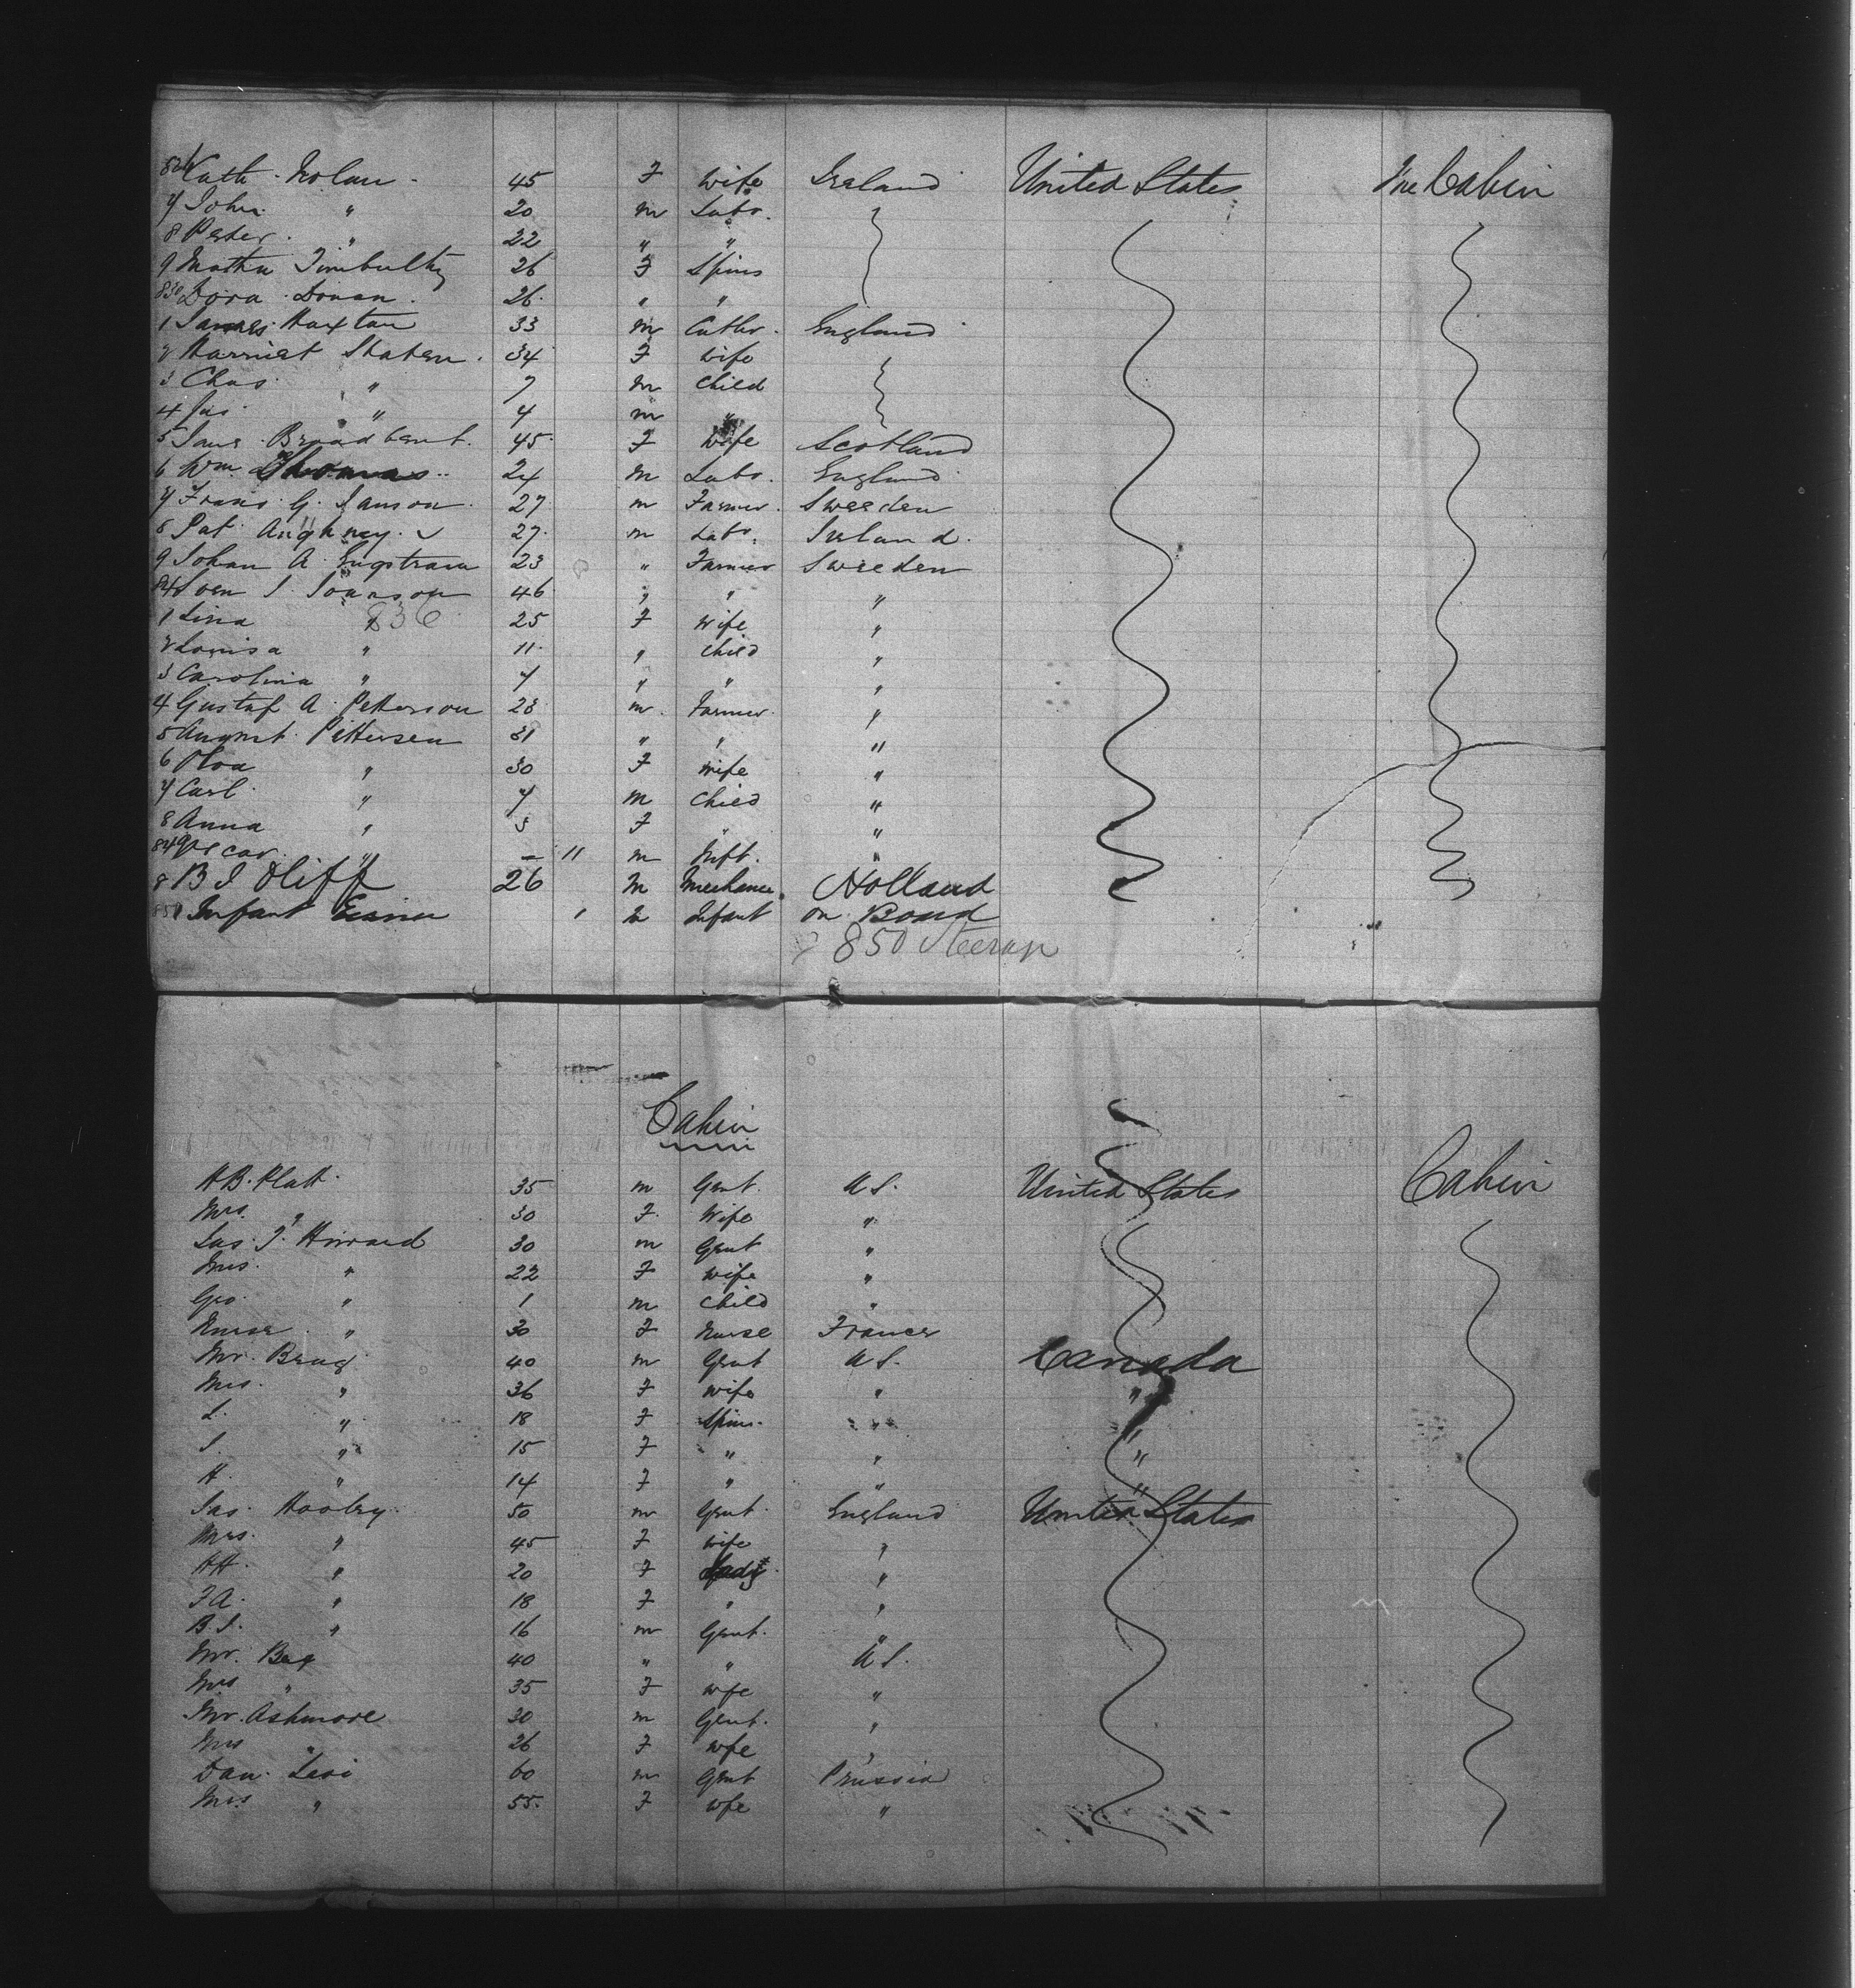 826 Cath. Nolan. 45 F Wife Ireland United States Nil Cabin
7 John " 20 m Labr.
8 Peter. " 22 " "
9 26 F Spins
830 Dora Donan. 26. " "
1 James Haxton 33 m Cutler. England
2 Harriet Staten. 34 F Wife
3 Chas. " 7 m Child
4 Jas. " 4 m "
5 Jane Broadbent. 45. F Wife Scotland
6 Wm Thomas 24 m Labr. England
7 Frans G. Janson. 27 m Farmer. Sweeden
8 Pat Aughney. ✓ 27. m Labr. Ireland.
9 Johan A. Engstram 23 " Farmer Sweeden
840 Sven J Joanson 46 " " "
1 Lina " 836 25 F Wife "
2 Lovisa " 11. " Child "
3 Carolina " 7 " " "
4 Gustaf A. Petterson 23 m. Farmer. "
5 August Pettersen 31 " " "
6 " 30 F Wife "
7 Carl. " 7 m Child "
8 Anna " 5 F " "
849 Oscar. " — 11 m Inft. "
8 B J Oliff 26 M Mechanic. Holland
850 Infant 1 m Infant on Board
850 Steerage
Cabin
H.B. Platt. 35 m Gent. U S. United States Cabin
Mrs. " 30 F. Wife "
Jas. T. Howard 30 m Gent "
Mrs. " 22 F Wife "
Geo. " 1 m Child "
Nurse. " 30 F Nurse France
Mr. Brag 40 m Gent U S. Canada
Mrs. " 36 F Wife " "
L. " 18 F Spins. " "
S. " 15 F " " "
H. " 14 F " " "
Jas. Hooley. 50 m Gent. England United States
Mrs. " 45 F Wife "
HH. " 20 F Lady. "
F A. " 18 F " "
B. J. " 16 m Gent. "
Mr. Beg 40 " " U S.
Mrs " 35 F Wfe "
Mr. Ashmore 30 m Gent. "
Mrs " 26 F Wfe "
Dan. Levi 60 m Gent Prussia
Mrs. " 55. F Wfe "